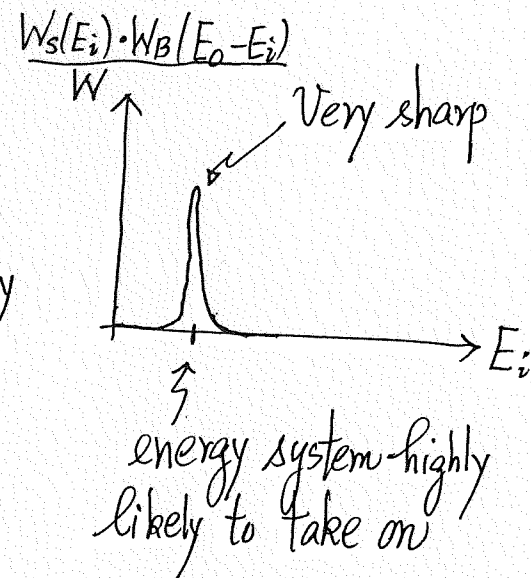 W_S(E_i)·W_B(E_0-E_i)
W
Very sharp
y
E_i
energy system highly
likely to take on